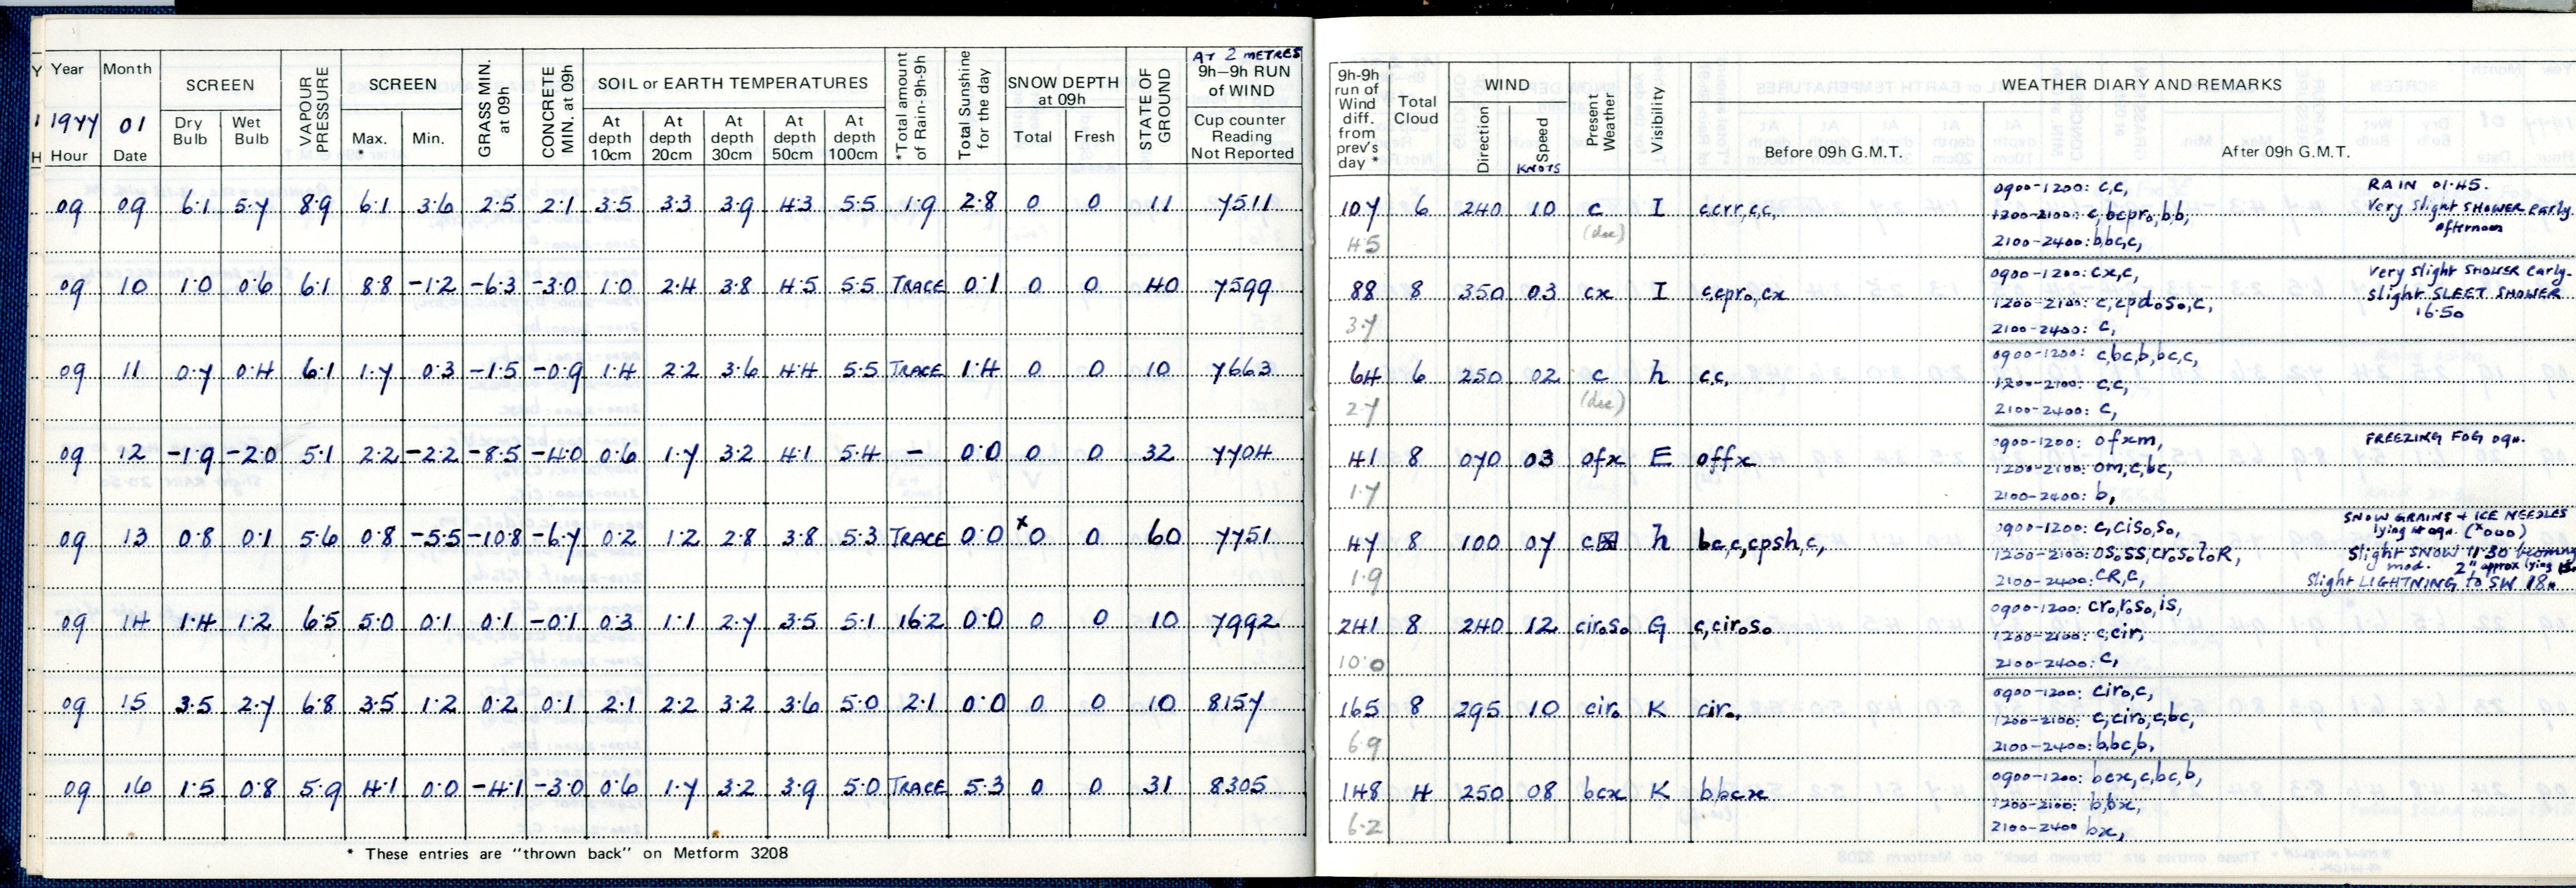 Year Month SCREEN VAPOUR PRESSURE SCREEN GRASS MIN. at 09h CONCRETE MIN. at 09h SOIL or EARTH TEMPERATURES *Total amount of Rain-9h-9h Total Sunshine for the day SNOW DEPTH at 09h STATE OF GROUND AT 2 METRES 9h–9h RUN of WIND
1977 01 Dry Bulb Wet Bulb Max. * Min. At depth 10cm At depth 20cm At depth 30cm At depth 50cm At depth 100cm Total Fresh Cup counter Reading Not Reported
Hour Date
09 09 6.1 5.7 8.9 6.1 3.6 2.5 2.1 3.5 3.3 3.9 4.3 5.5 1.9 2.8 0 0 11 7511
09 10 1.0 0.6 6.1 8.8 -1.2 -6.3 -3.0 1.0 2.4 3.8 4.5 5.5 TRACE 0.1 0 0 40 7599
09 11 0.7 0.4 6.1 1.7 0.3 -1.5 -0.9 1.4 2.2 3.6 4.4 5.5 TRACE 1.4 0 0 10 7663
09 12 -1.9 -2.0 5.1 2.2 -2.2 -8.5 -4.0 0.6 1.7 3.2 4.1 5.4 – 0.0 0 0 32 7704
09 13 0.8 0.1 5.6 0.8 -5.5 -10.8 -6.7 0.2 1.2 2.8 3.8 5.3 TRACE 0.0 x0 0 60 7751
09 14 1.4 1.2 6.5 5.0 0.1 0.1 -0.1 0.3 1.1 2.7 3.5 5.1 16.2 0.0 0 0 10 7992
09 15 3.5 2.7 6.8 3.5 1.2 0.2 0.1 2.1 2.2 3.2 3.6 5.0 2.1 0.0 0 0 10 8157
09 16 1.5 0.8 5.9 4.1 0.0 -4.1 -3.0 0.6 1.7 3.2 3.9 5.0 TRACE 5.3 0 0 31 8305
* These entries are "thrown back" on Metform 3208
9h-9h run of Wind diff. from prev's day * Total Cloud WIND Present Weather Visibility WEATHER DIARY AND REMARKS
Direction Speed KNOTS Before 09h G.M.T. After 09h G.M.T.
107 6 240 10 c I c,crr,c,c, 0900-1200: c,c, RAIN 01.45.
(dec) 1200-2100: c,bcpr₀,b,b, Very slight SHOWER early
45 2100-2400: b,bc,c, afternoon
88 8 350 03 cx I c,cpr₀,cx 0900-1200: cx,c, Very slight SHOWER early.
1200-2100: c,cpd₀s₀,c, slight SLEET SHOWER
3.7 2100-2400: c, 16.50
64 6 250 02 c h c,c, 0900-1200: c,bc,b,bc,c,
(dec) 1200-2100: c,c,
2.7 2100-2400: c,
41 8 070 03 ofx E offx 0900-1200: ofxm, FREEZING FOG 09h.
1200-2100: om,c,bc,
1.7 2100-2400: b,
47 8 100 07 c h bc,c,cpsh,c, 0900-1200: c,cis₀,s₀, SNOW GRAINS + ICE NEEDLES
lying at 09h. (x000)
1200-2100: os₀ss,cr₀s₀l₀R, Slight SNOW 11.30 becoming
mod. 2" approx lying
1.9 2100-2400: cR,c, Slight LIGHTNING to SW 18h.
241 8 240 12 cir₀s₀ G c,cir₀s₀ 0900-1200: cr₀,r₀s₀,is,
1200-2100: c,cir,
10.0 2100-2400: c,
165 8 295 10 cir₀ K cir₀, 0900-1200: cir₀,c,
1200-2100: c,cir₀,c,bc,
6.9 2100-2400: b,bc,b,
148 4 250 08 bcx K b,bcx 0900-1200: bcx,c,bc,b,
1200-2100: b,bx,
6.2 2100-2400 bx,